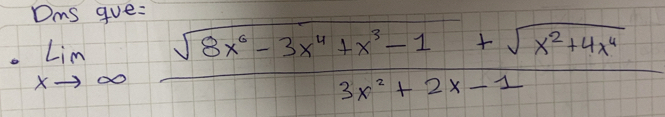 Dms que:
• Lim x → ∞ (√(8x⁶ - 3x⁴ + x³ - 1) + √(x² + 4x⁴)) / (3x² + 2x - 1)